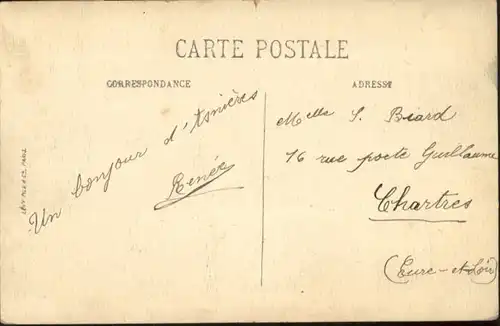 CARTE POSTALE
CORRESPONDANCE
ADRESSE
Un bonjour d'Asnières
Renée
Melle S. Biard
16 rue porte Guillaume
Chartres
(Eure-et-Loir)